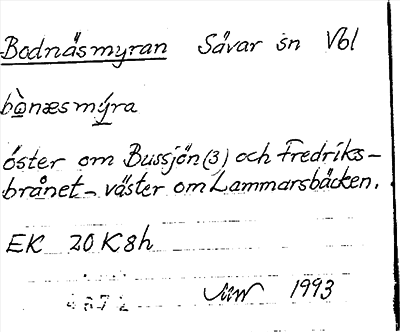 Bodnäsmyran Sävar sn Vbl
bò̱næsmý̱ra
öster om Bussjön (3) och Fredriks-
brånet – väster om Lammarsbäcken.
EK 20K8h
1993